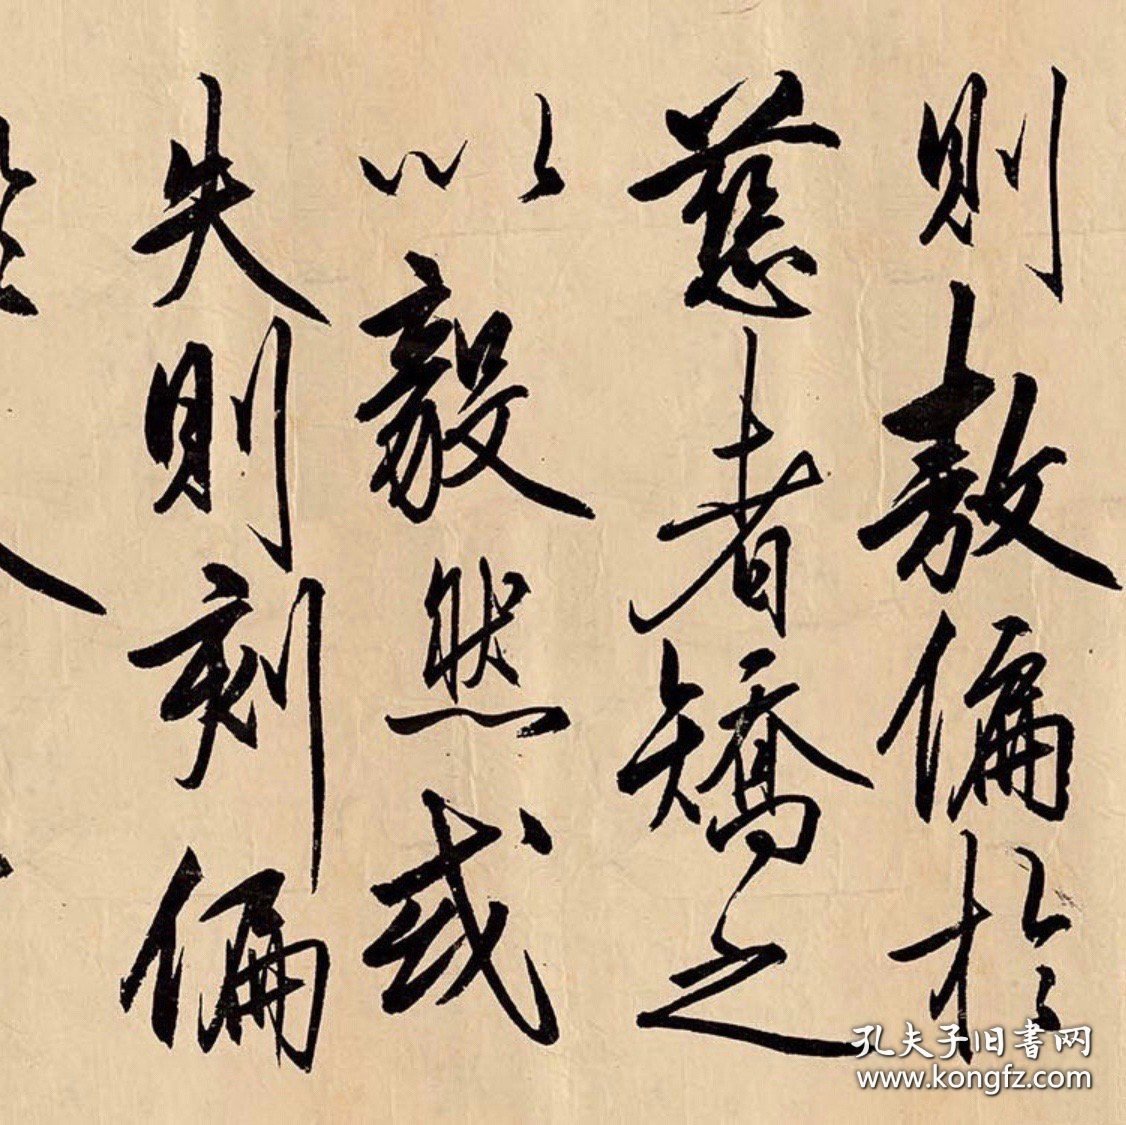 則敖偏於
慈者矯之
以毅然或
失則刻偏
孔夫子旧書网
www.kongfz.com